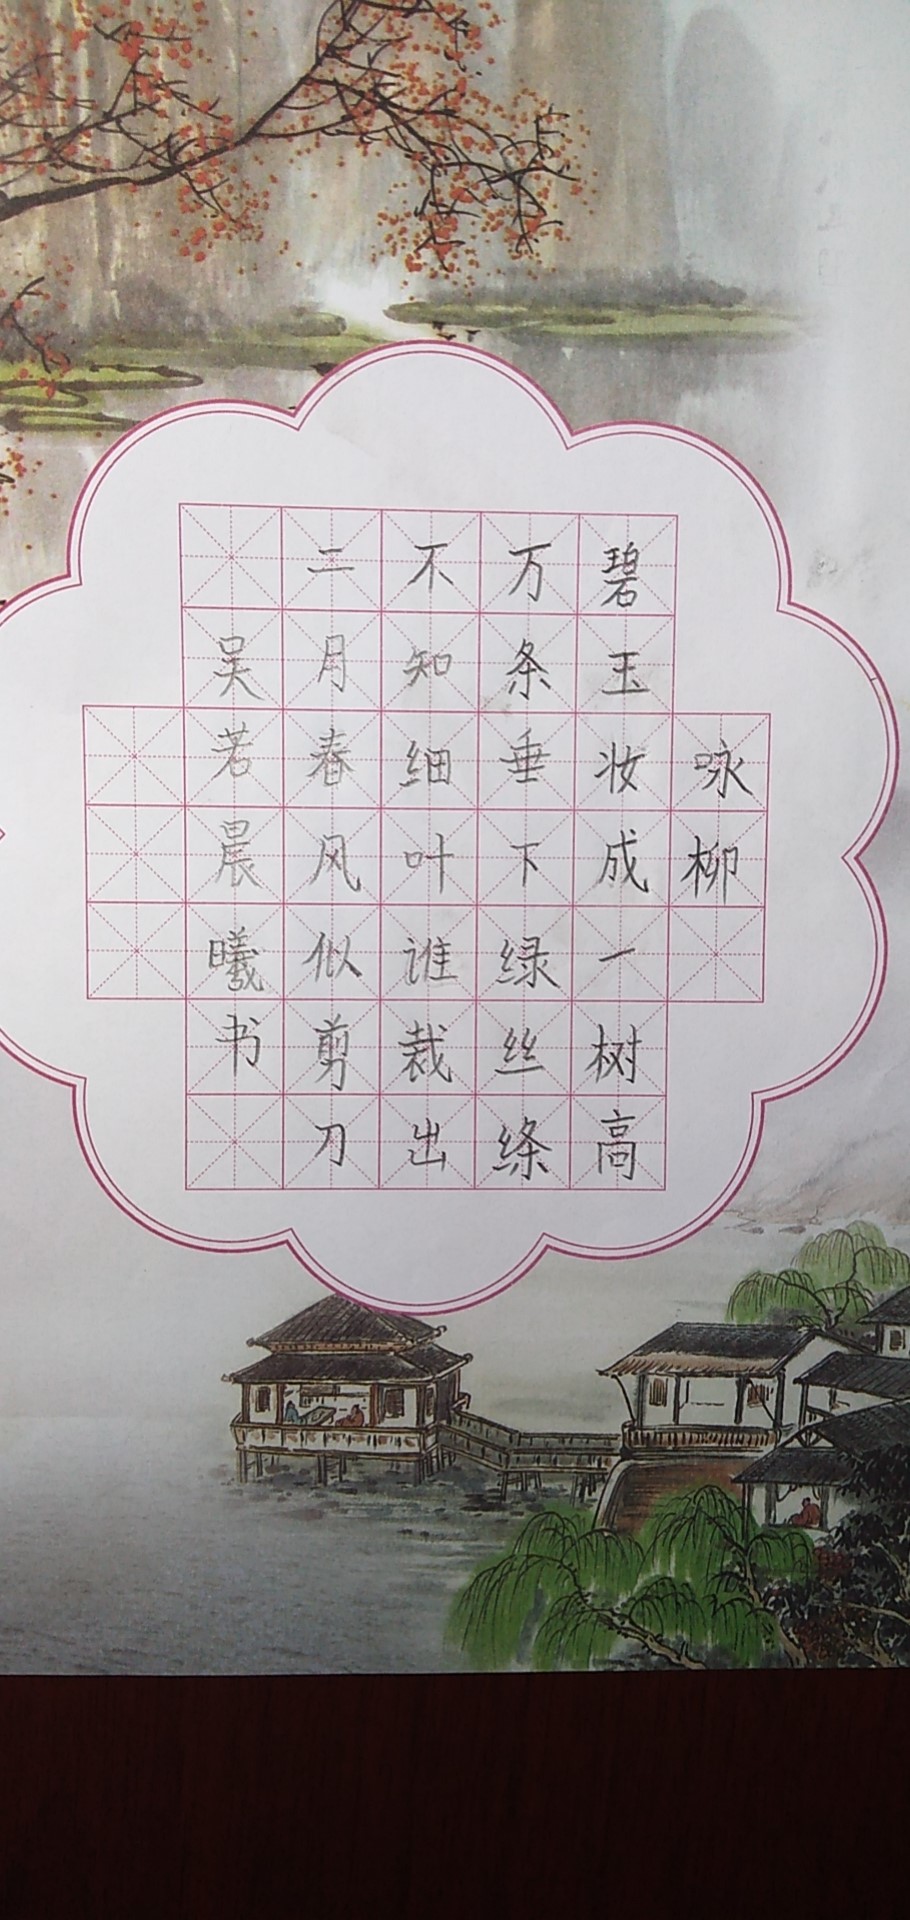 咏柳
碧玉妆成一树高
万条垂下绿丝绦
不知细叶谁裁出
二月春风似剪刀
吴若晨曦书